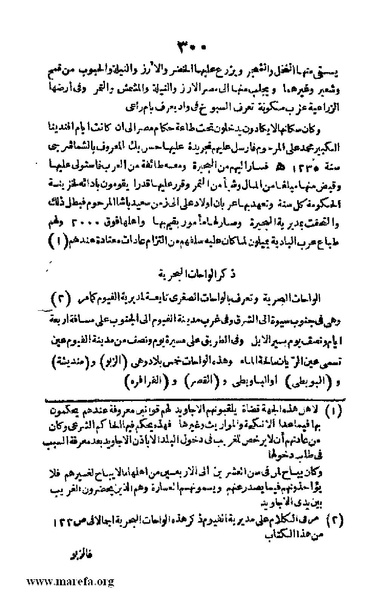 ٣٠٠
يستقى منها النخل والشجر ويزرع عليها الخضر والأرز والنيلة والحبوب من قمح
وشعير وغيرهما ويجلب منها الى مصر الارز والنيلة والمشمش والتمر وفى أرضها
الزراعية عزب مسكونة تعرف السبوخ فى واد يعرف بام راعى
وكان سكانها لا يكادون يدخلون تحت طاعة حكام مصر الى ان كانت أيام افندينا
الكبير محمد على المرحوم فارسل عليهم تجريدة عليها حسن بك المعروف بالشماشرجى
سنة ١٢٣٥ ﻫ فسار اليهم من البحيرة ومعه طائفة من العرب فاستولى عليها
وقبض منها مبلغا من المال وشيأ من التمر وقرر عليها قدرا يقومون بادائه لخزينة
الحكومة كل سنة وتعهد بها عربان اولاد على الى زمن سعيد باشا المرحوم فبطل ذلك
والتحقت بمديرية البحيرة وصار لها مأمور يقيم بها وأهلها فوق ٢٠٠٠ ولهم
طباع عرب البادية يميلون لما كان عليه سلفهم من التزام عادات معتادة عندهم (١)
ذكر الواحات البحرية
الواحات البحرية وتعرف بالواحات الصغرى تابعة لمديرية الفيوم كما مر (٢)
وهى فى جنوب سيوة الى الشرق وفى غرب مدينة الفيوم الى الجنوب على مسافة اربعة
ايام ونصف يوم بسير الابل وفى الطريق على مسيرة يوم ونصف من مدينة الفيوم عين
تسمى عين الريان صالحة الماء وهذه الواحات خمس بلاد وهى (الزبو) و (منديشة)
و (البويطى) او الباويطى و (القصر) و (الفرافره)
(١) لاهل هذه الجهة قضاة يلقبونهم الاجاويد لهم قوانين معروفة عندهم يحكمون
بها فيما عدا الانكحة والمواريث وغيرها فهذه يحكم فيها الحاكم الشرعى وكان
من عادتهم أن لا يرخص للغريب فى دخول البلد الا باذن الاجاويد بعد معرفة السبب
فى طلبه دخولها
وكان يباح لمن فى سن العشرين الى الاربعين من اهلها ما لا يباح لغيرهم فلا
يؤاخذونهم فيما يصدر عنهم ويسمونهم العسارة وهم الذين يحضرون الغريب
بين يدى الاجاويد
(٢) مر فى الكلام على مديرية الفيوم ذكر هذه الواحات البحرية اجمالا فى ص ١٢٢
من هذا الكتاب
فالزبو
www.marefa.org